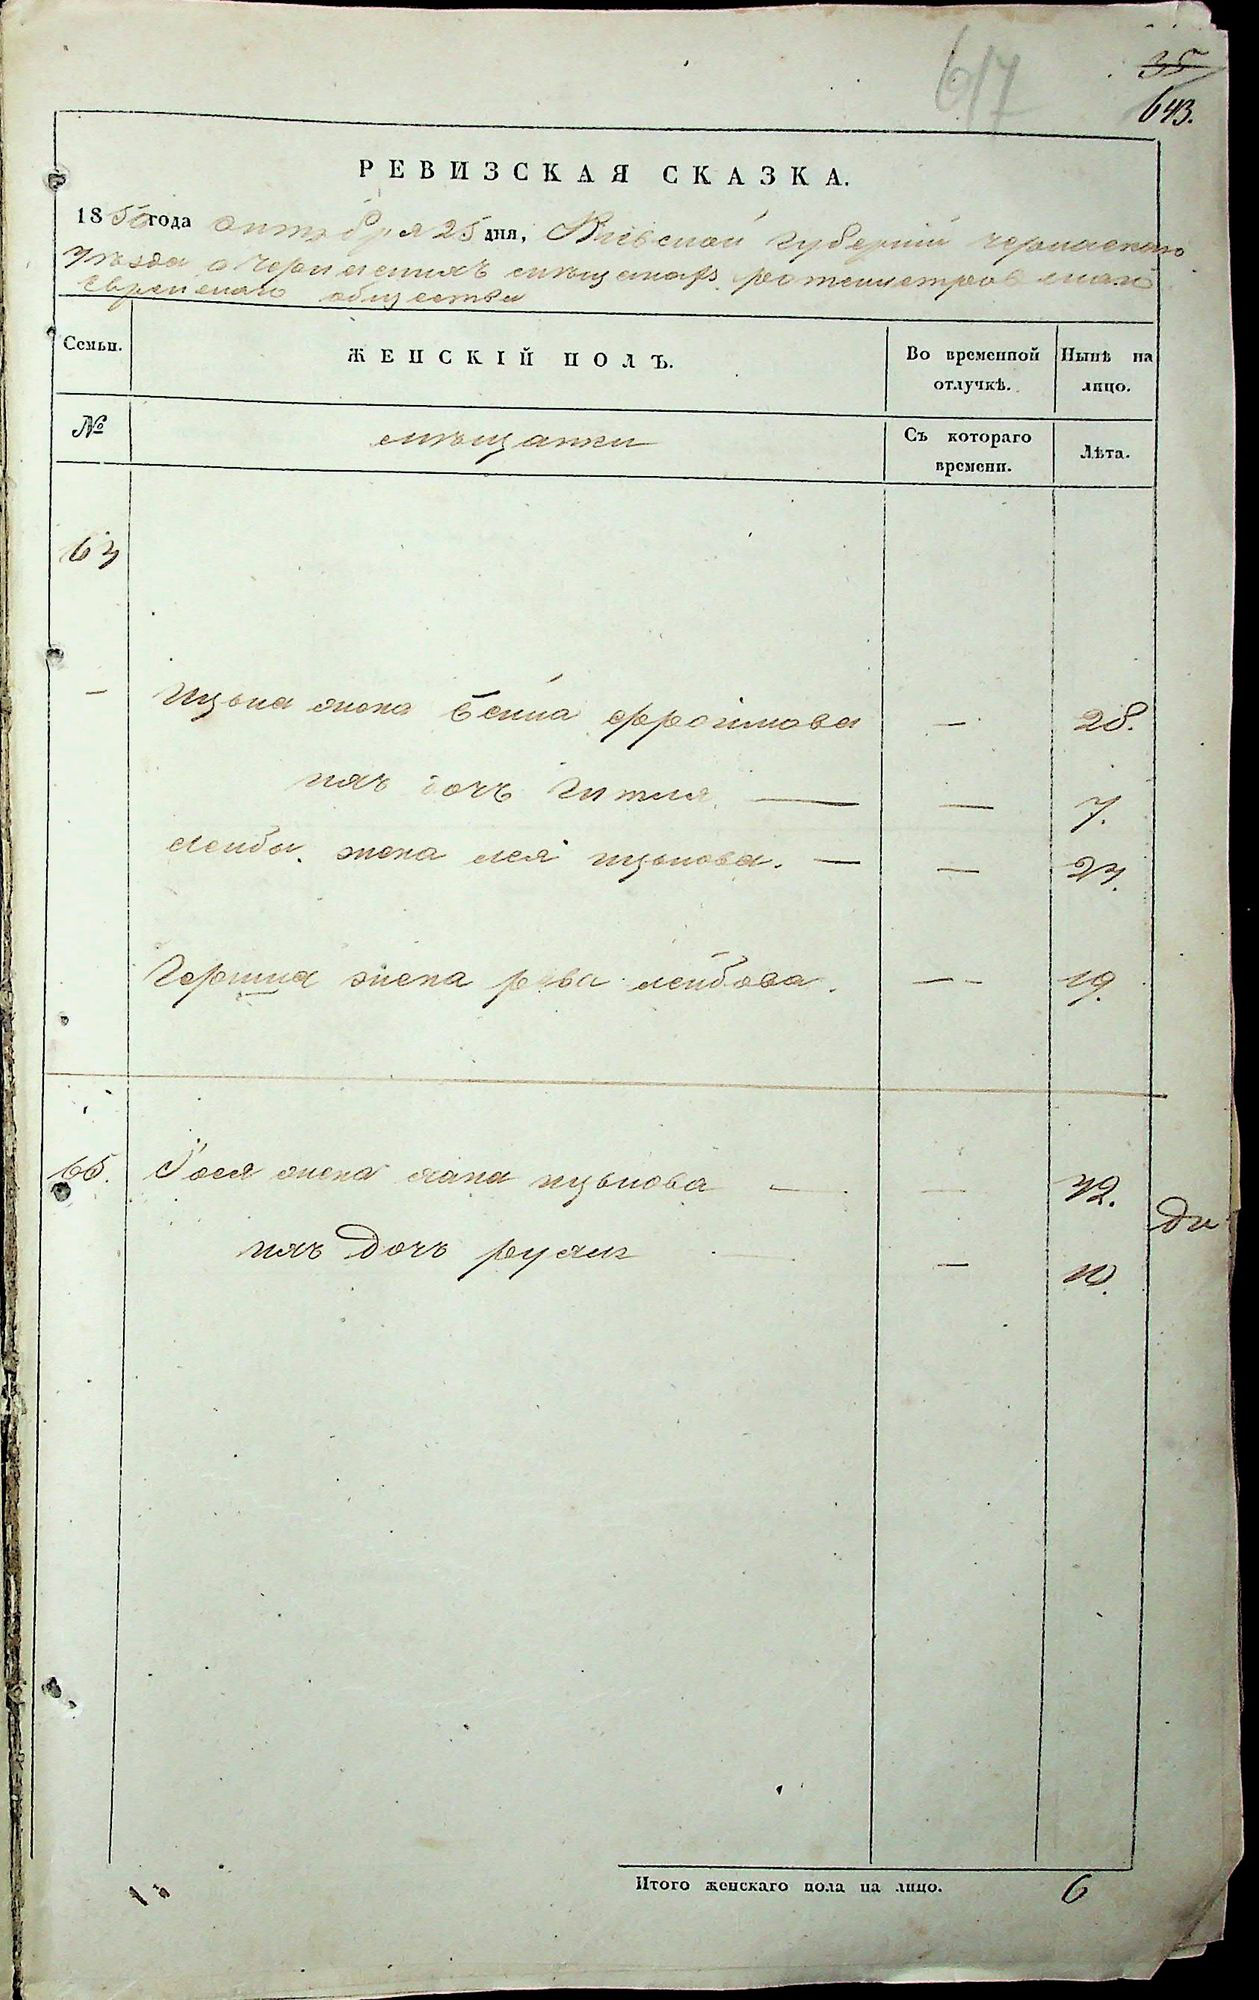 617
35
643.
РЕВИЗСКАЯ СКАЗКА.
1850 года октября 25 дня, Киевской губернии черкаскаго
уезда о мещанах ротмистровскаго
Еврейскаго общества
Семьи.
ЖЕНСКІЙ ПОЛЪ.
Во временной отлучкѣ.
Нынѣ на лицо.
№
мещанки
Съ котораго времени.
Лѣта.
63
— Ицька жена Бейла Фроимова — 28.
ихъ дочь Гитля — — 7.
Лейбы жена Лея ицькова. — — 27.
Гершка жена рива лейбова. — - 19.
65. жена хана ицькова — — 42.
ихъ дочь рухля — 10.
Итого женскаго пола на лицо. 6